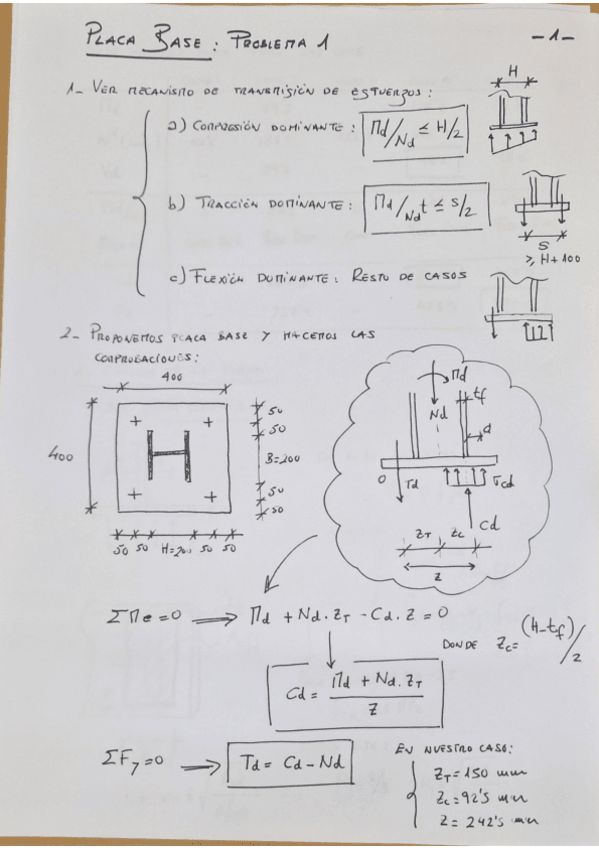 PLACA BASE: PROBLEMA 1
-1-
1- VER MECANISMO DE TRANSMISIÓN DE ESFUERZOS:
a) COMPRESIÓN DOMINANTE: Md/Nd ≤ H/2
H
b) TRACCIÓN DOMINANTE: Md/Nd,t ≤ s/2
S
≥ H+100
c) FLEXIÓN DOMINANTE: RESTO DE CASOS
2- PROPONEMOS PLACA BASE Y HACEMOS LAS
COMPROBACIONES:
400
400
50
50
B=200
50
50
50 50 H=200 50 50
Md
Nd
tf
d
O
Td
σcd
Cd
ZT Zc
Z
ΣMe=0 → Md + Nd. ZT - Cd. Z = 0
DONDE Zc= (H-tf)/2
Cd = Md + Nd. ZT / Z
ΣFy=0 → Td = Cd - Nd
EN NUESTRO CASO:
ZT=150 mm
Zc=92'5 mm
Z= 242'5 mm